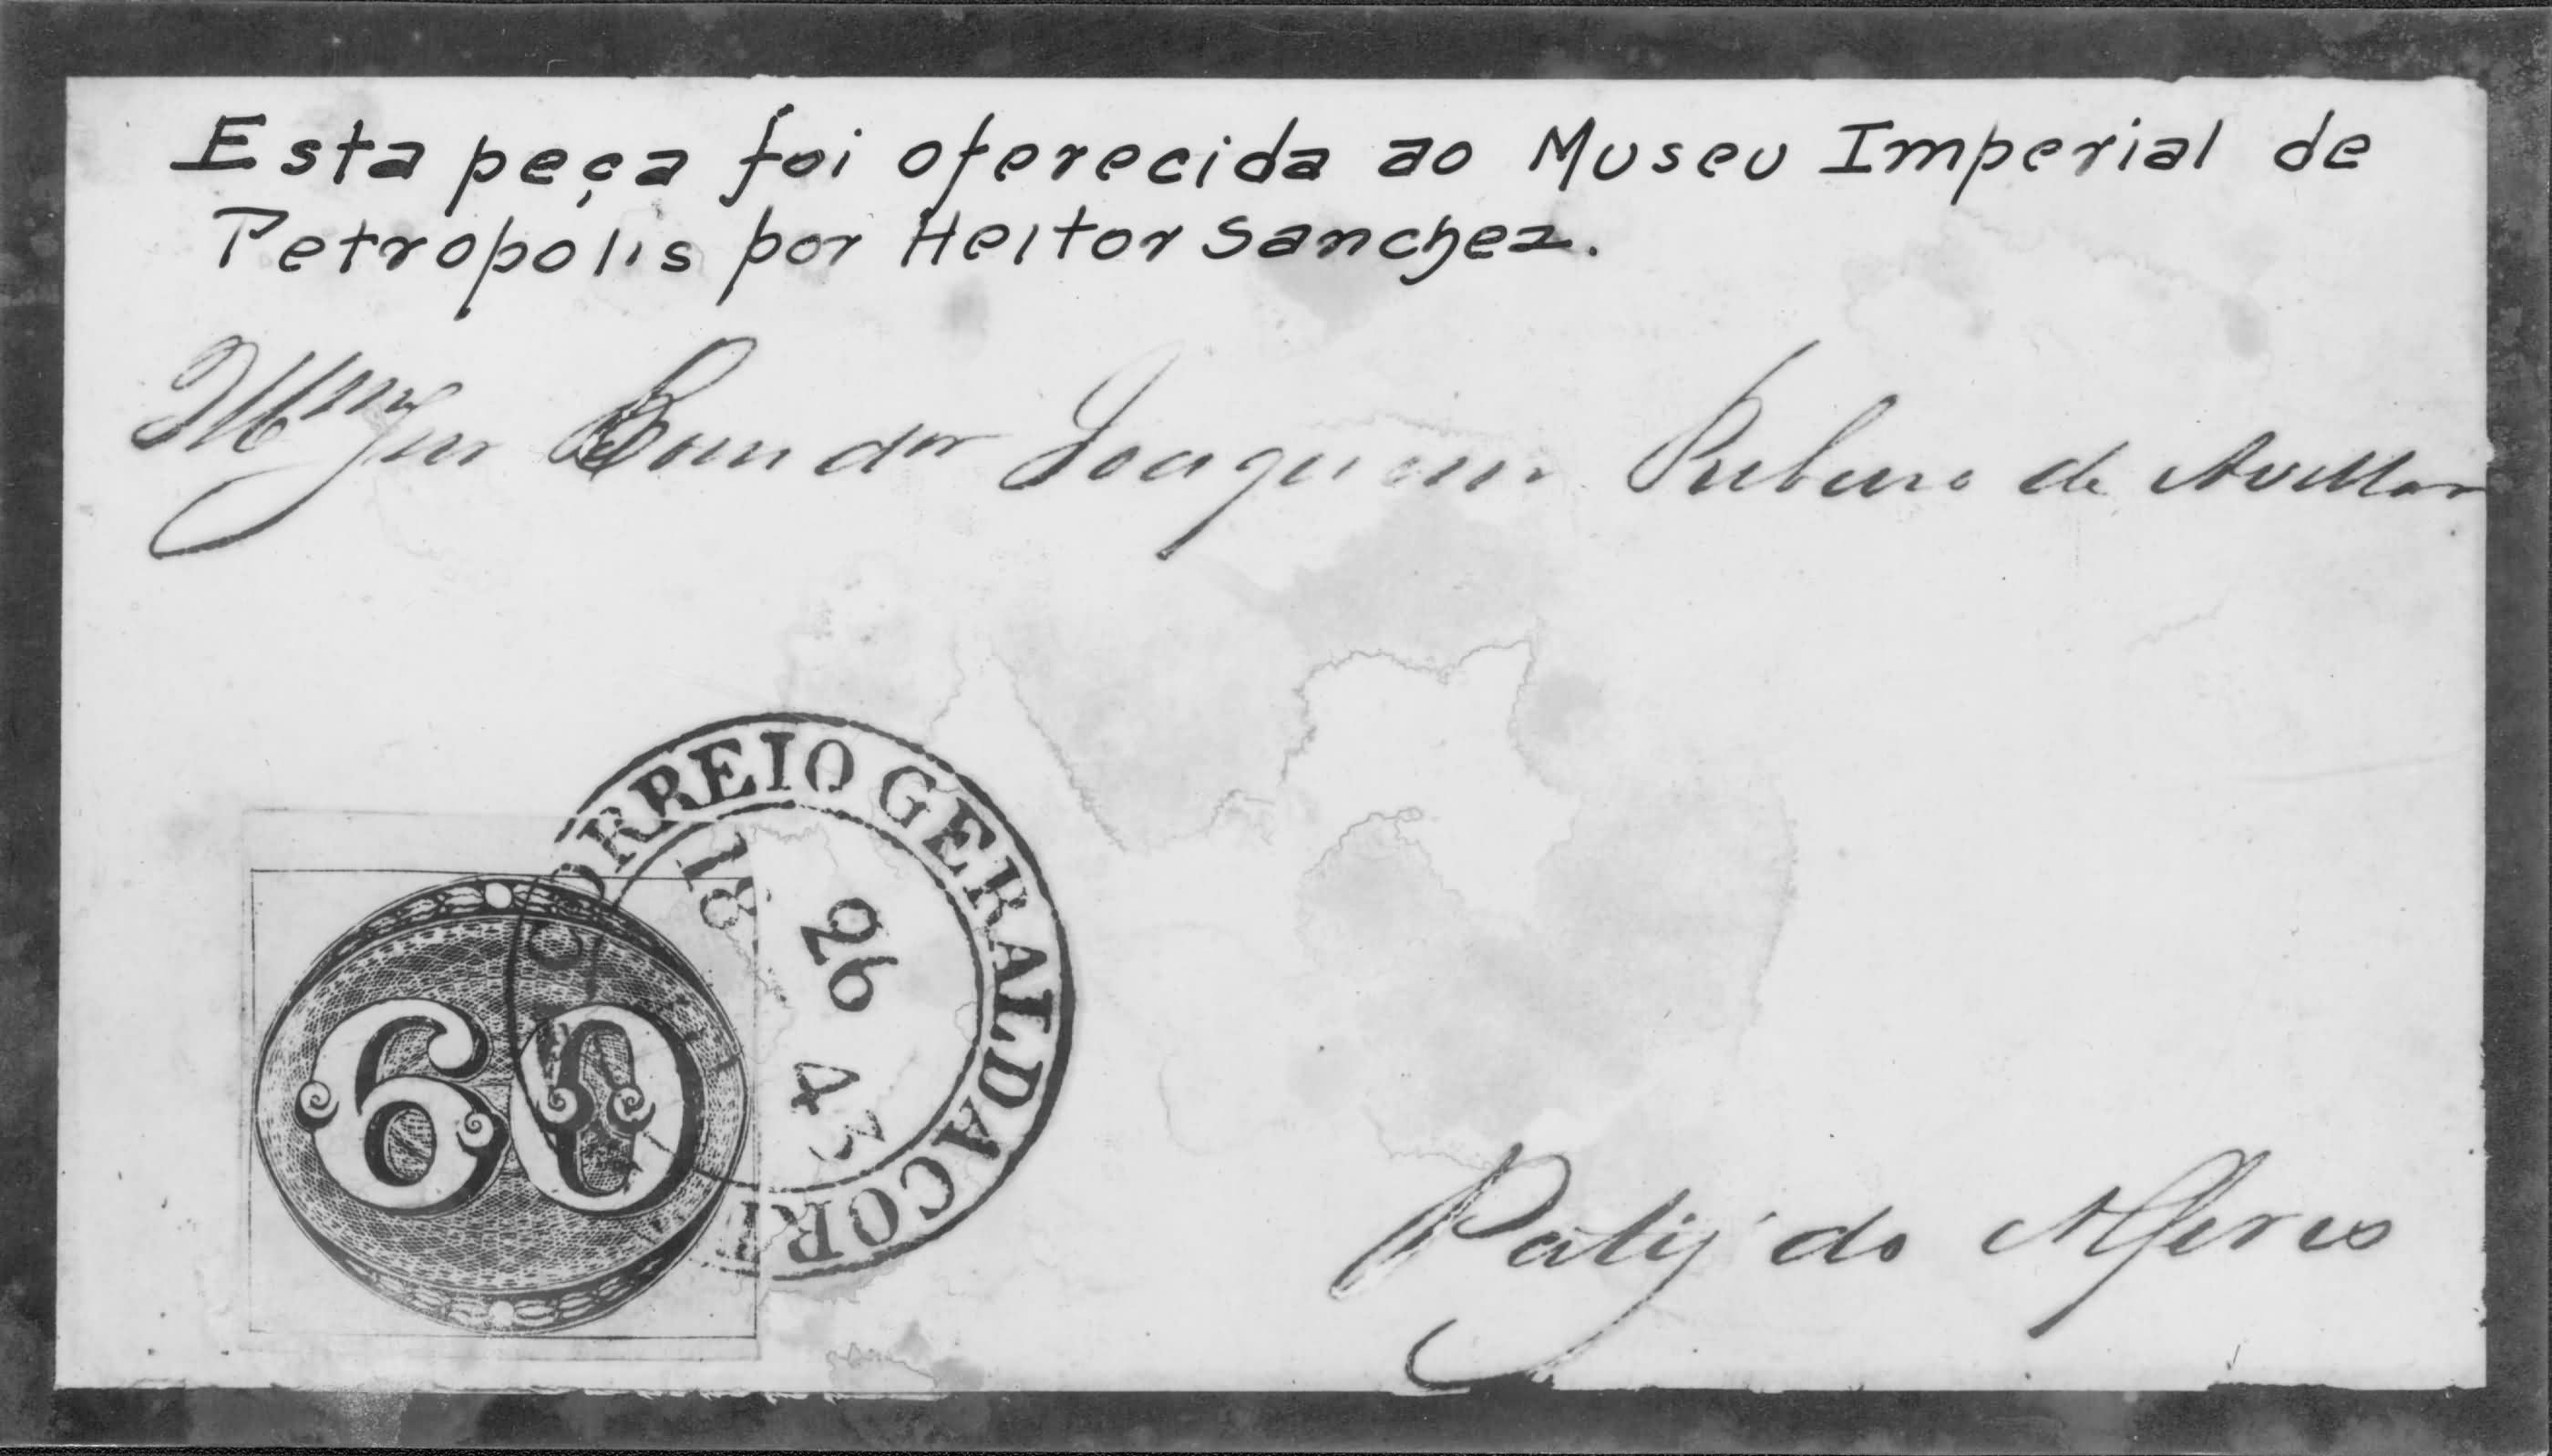 Esta peça foi oferecida ao Museu Imperial de
Petropolis por Heitor Sanchez.
Illmo Snr Comdor Joaquim Ribeiro de Avellar
CORREIO GERAL DA CORTE
18
26
43
60
Paty do Alferes